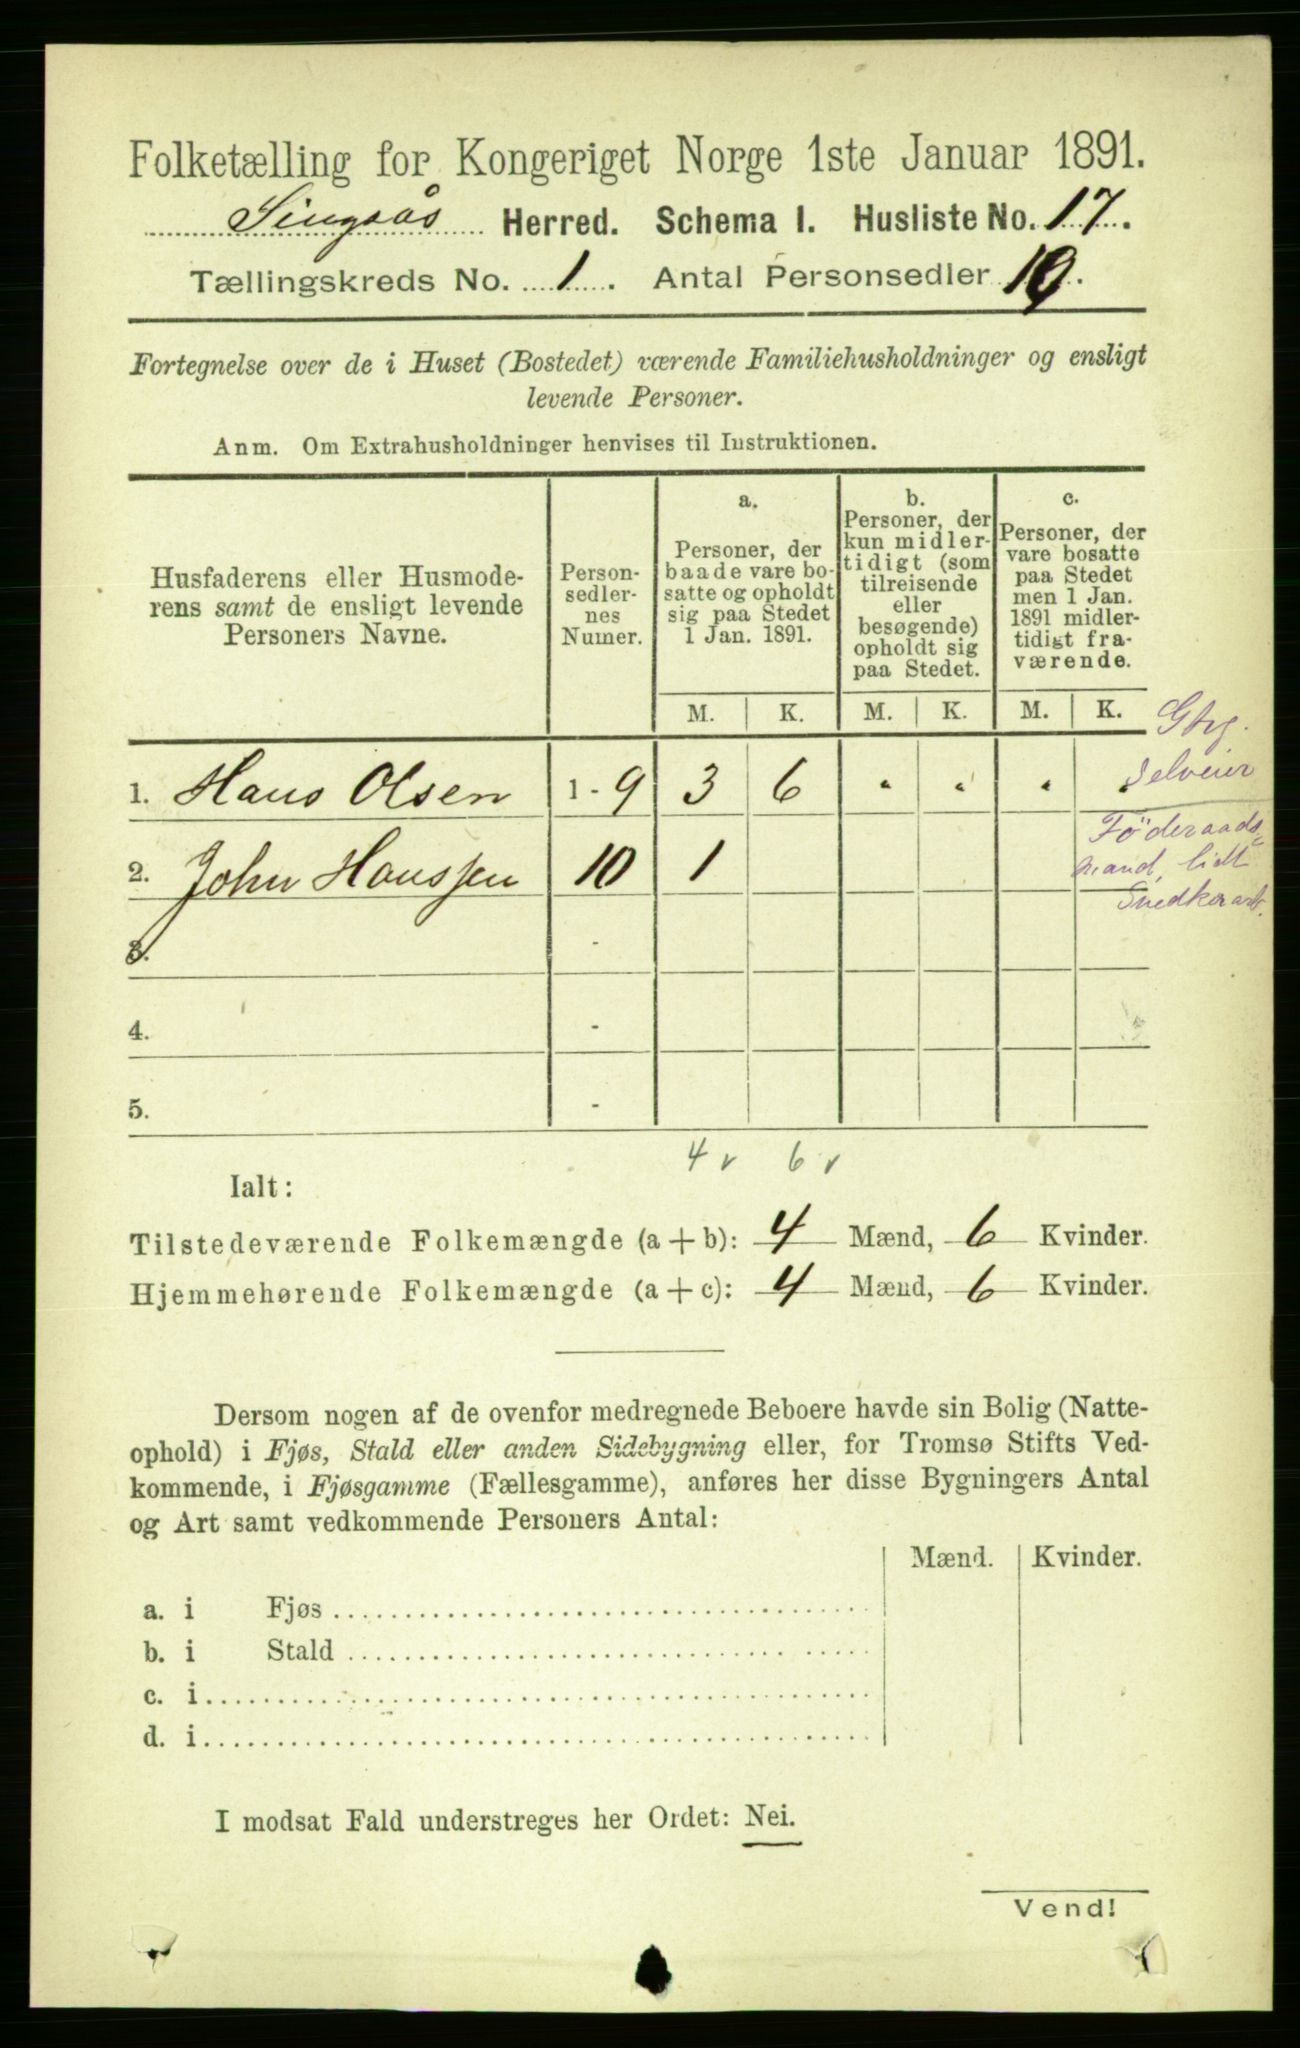 Folketælling for Kongeriget Norge 1ste Januar 1891.
Singsås Herred. Schema I. Husliste No. 17.
Tællingskreds No. 1. Antal Personsedler 10.
Fortegnelse over de i Huset (Bostedet) værende Familiehusholdninger og ensligt
levende Personer.
Anm. Om Extrahusholdninger henvises til Instruktionen.
Husfaderens eller Husmode-
rens samt de ensligt levende
Personers Navne.
Person-
sedler-
nes
Numer.
a.
Personer, der
baade vare bo-
satte og opholdt
sig paa Stedet
1 Jan. 1891.
b.
Personer, der
kun midler-
tidigt (som
tilreisende
eller
besøgende)
opholdt sig
paa Stedet.
c.
Personer, der
vare bosatte
paa Stedet
men 1 Jan.
1891 midler-
tidigt fra-
værende.
M. K. M. K. M. K.
Gbr.
Selveier
1. Hans Olsen 1 - 9 3 6 " " " "
Föderaads-
mand, lidt
Snedkerarb.
2. John Hanssen 10 1
3. -
4. -
5. -
4 v 6 v
Ialt:
Tilstedeværende Folkemængde (a + b): 4 Mænd, 6 Kvinder.
Hjemmehørende Folkemængde (a + c): 4 Mænd, 6 Kvinder.
Dersom nogen af de ovenfor medregnede Beboere havde sin Bolig (Natte-
ophold) i Fjøs, Stald eller anden Sidebygning eller, for Tromsø Stifts Ved-
kommende, i Fjøsgamme (Fællesgamme), anføres her disse Bygningers Antal
og Art samt vedkommende Personers Antal:
Mænd. Kvinder.
a. i Fjøs
b. i Stald
c. i
d. i
I modsat Fald understreges her Ordet: Nei.
Vend!